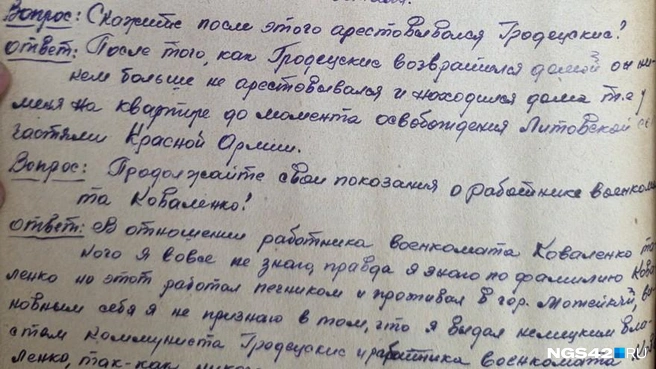 Вопрос: Скажите после этого арестовывался Гродецкис?
Ответ: После того, как Гродецкис возвратился домой он ни-
нем больше не арестовывался и находился дома т.е у
меня на квартире до момента освобождения Литовской
частями Красной Армии.
Вопрос: Продолжайте свои показания о работнике военкома
та Коваленко!
Ответ: В отношении работника военкомата Коваленко та
кого я вовсе не знаю, правда я знаю по фамилию Кова
ленко но этот работал печником и проживал в гор. Можейкий, ви
новным себя я не признаю в том, что я выдал немецким вла-
стям коммуниста Гродецкис и работника военкомата
ленко, так-как
NGS42.RU